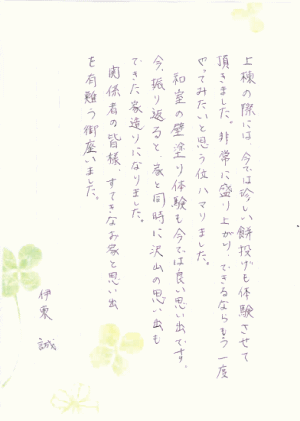 上棟の際には、今では珍しい餅投げも体験させて
頂きました。非常に盛り上がり、できるならもう一度
やってみたいと思う位ハマりました。
和室の壁塗り体験も今では良い思い出です。
今、振り返ると、家と同時に沢山の思い出も
できた家造りになりました。
関係者の皆様、すてきなお家と思い出
を有難う御座いました。
伊東 誠